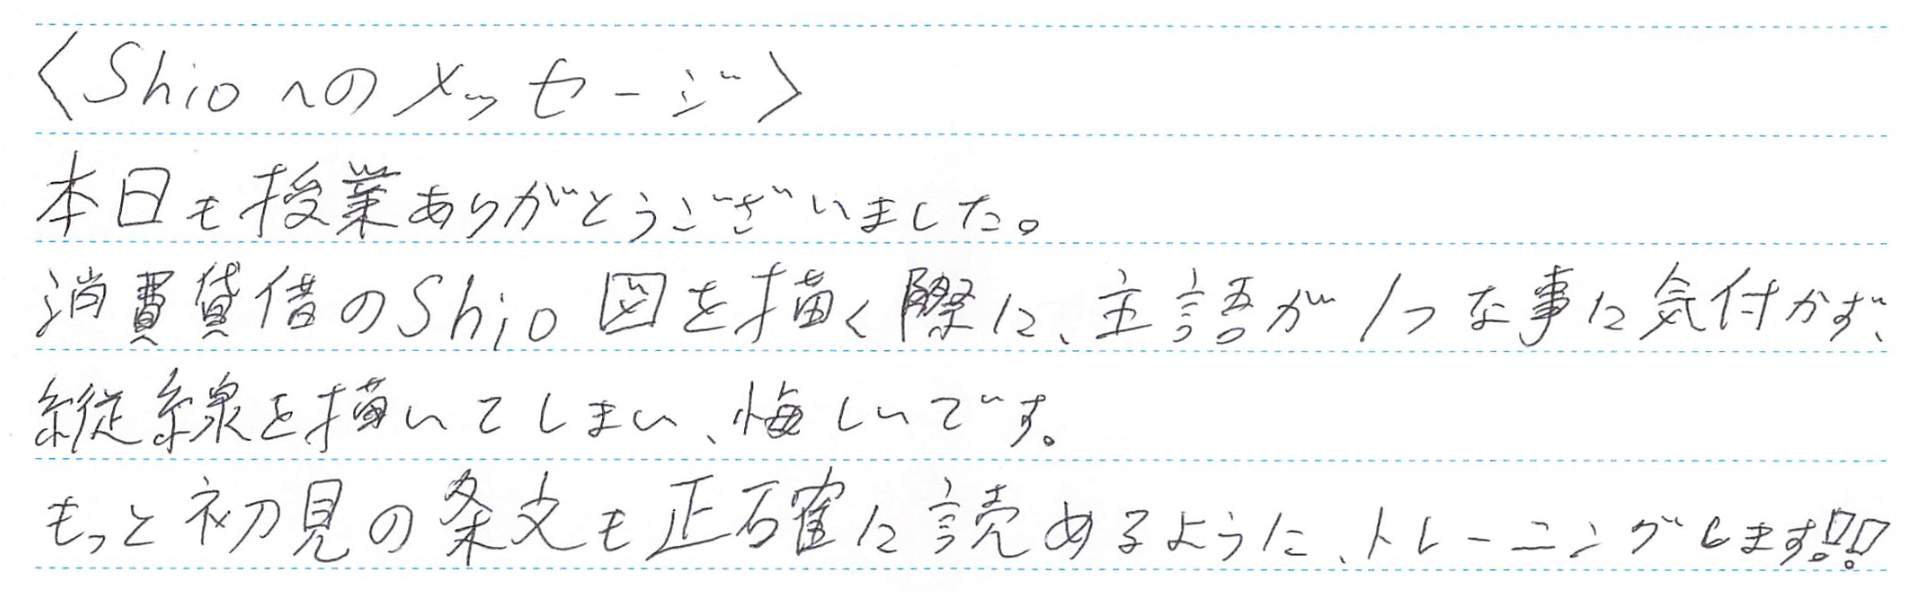 〈Shioへのメッセージ〉
本日も授業ありがとうございました。
消費貸借のShio図を描く際に、主語が1つな事に気付かず、
縦線を描いてしまい、悔しいです。
もっと初見の条文も正確に読めるように、トレーニングします!!